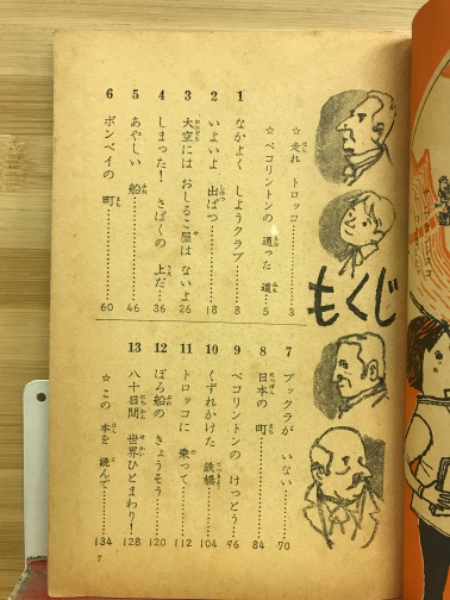 もくじ
☆走れ トロッコ……………3
☆ペコリントンの 通った 道……5
1 なかよく しようクラブ………8
2 いよいよ 出ぱつ…………18
3 大空には おしるこ屋は ないよ 26
4 しまった! さばくの 上だ……36
5 あやしい 船……………46
6 ボンベイの 町……………60
7 ブックラが いない…………70
8 日本の 町……………84
9 ペコリントンの けっとう……96
10 くずれかけた 鉄橋…………104
11 トロッコに 乗って…………112
12 ぼろ船の きょうそう………120
13 八十日間 世界ひとまわり!…128
☆この 本を 読んで…………134
7